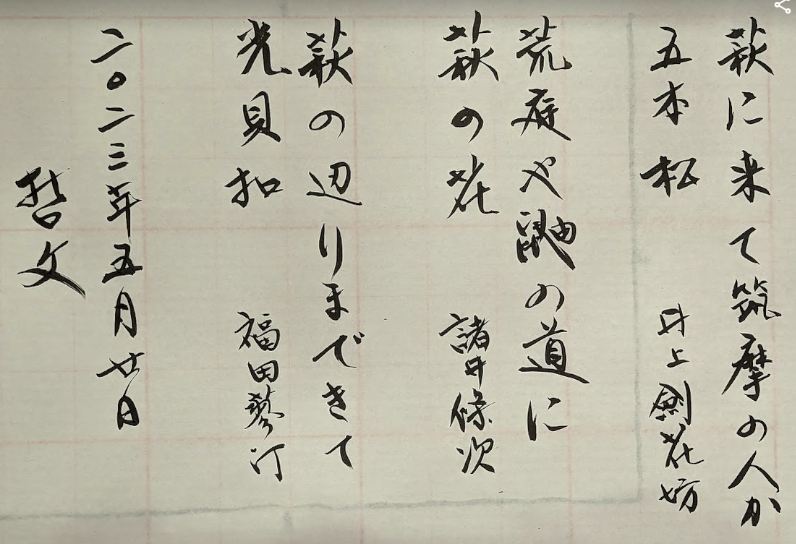 萩に来て筑摩の人か
五本松
井上剣花坊
荒庭や鼬の道に
萩の花
諸井條次
萩の辺りまできて
光貝扣
福田蓼汀
二〇二三年五月廿日
哲文